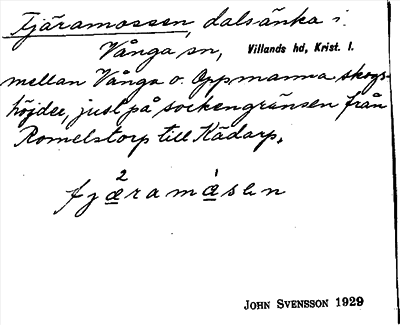 Fjäramossen, dalsänka i
Vånga sn, Villands hd, Krist. l.
mellan Vånga o. Oppmanna skogs-
höjder, just på sockengränsen från
Romelstorp till Kädarp.
2 1
fjæramåsen
JOHN SVENSSON 1929